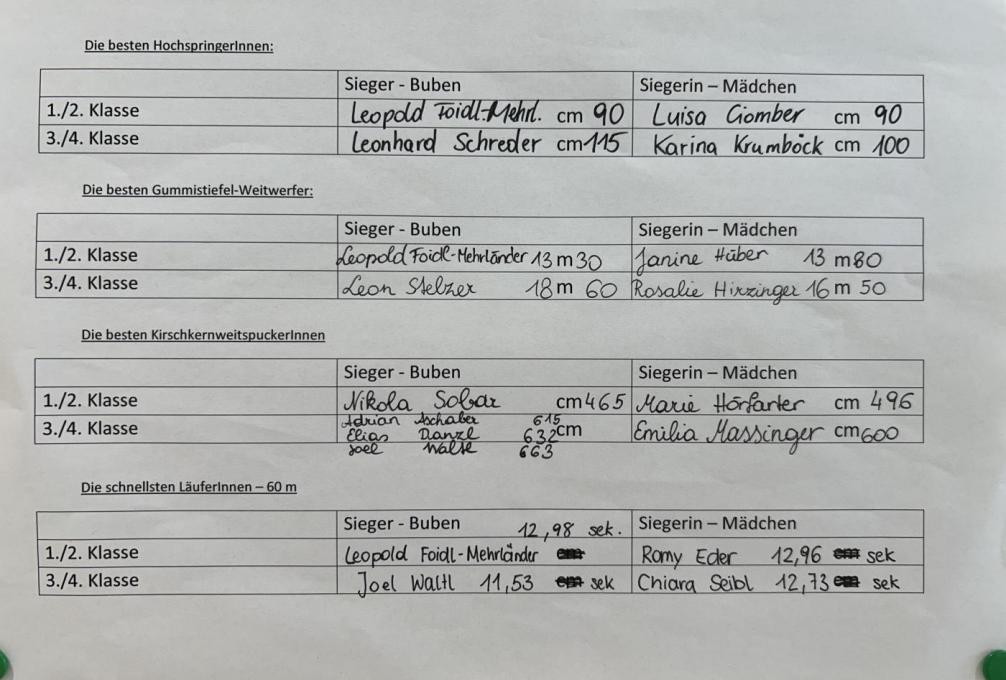 Die besten HochspringerInnen:
Sieger - Buben Siegerin – Mädchen
1./2. Klasse Leopold Foidl-Mehrl. cm 90 Luisa Giomber cm 90
3./4. Klasse Leonhard Schreder cm 115 Karina Krumböck cm 100
Die besten Gummistiefel-Weitwerfer:
Sieger - Buben Siegerin – Mädchen
1./2. Klasse Leopold Foidl-Mehrländer 13 m 30 Janine Huber 13 m 80
3./4. Klasse Leon Stelzer 18 m 60 Rosalie Hirzinger 16 m 50
Die besten KirschkernweitspuckerInnen
Sieger - Buben Siegerin – Mädchen
1./2. Klasse Nikola Sobar cm 465 Marie Hörfarter cm 496
3./4. Klasse Adrian Aschaber 615 Emilia Massinger cm 600
Elias Danzl 632 cm
Joel 663
Die schnellsten LäuferInnen – 60 m
Sieger - Buben 12,98 sek. Siegerin – Mädchen
1./2. Klasse Leopold Foidl-Mehrländer cm Romy Eder 12,96 cm sek
3./4. Klasse Joel Waltl 11,53 cm sek Chiara Seibl 12,73 cm sek